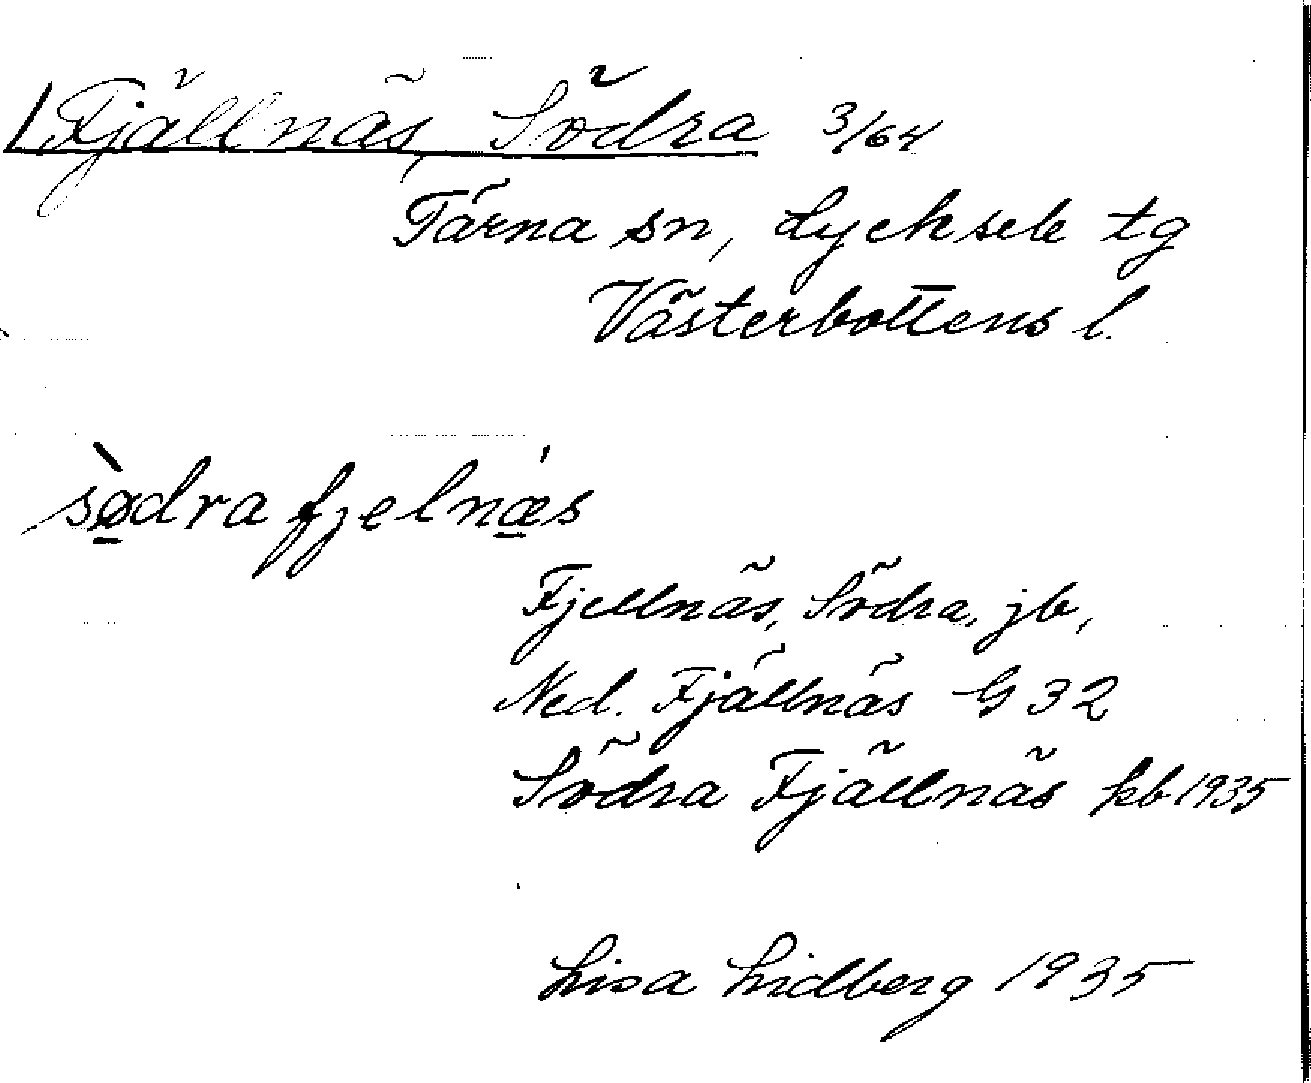 Fjällnäs, Södra 3/64
Tärna sn, Lycksele tg
Västerbottens l.
sø̀dra fjelnǽs
Fjellnäs, Södra, jb,
Ned. Fjällnäs G 32
Södra Fjällnäs kb 1935
Lisa Lidberg 1935